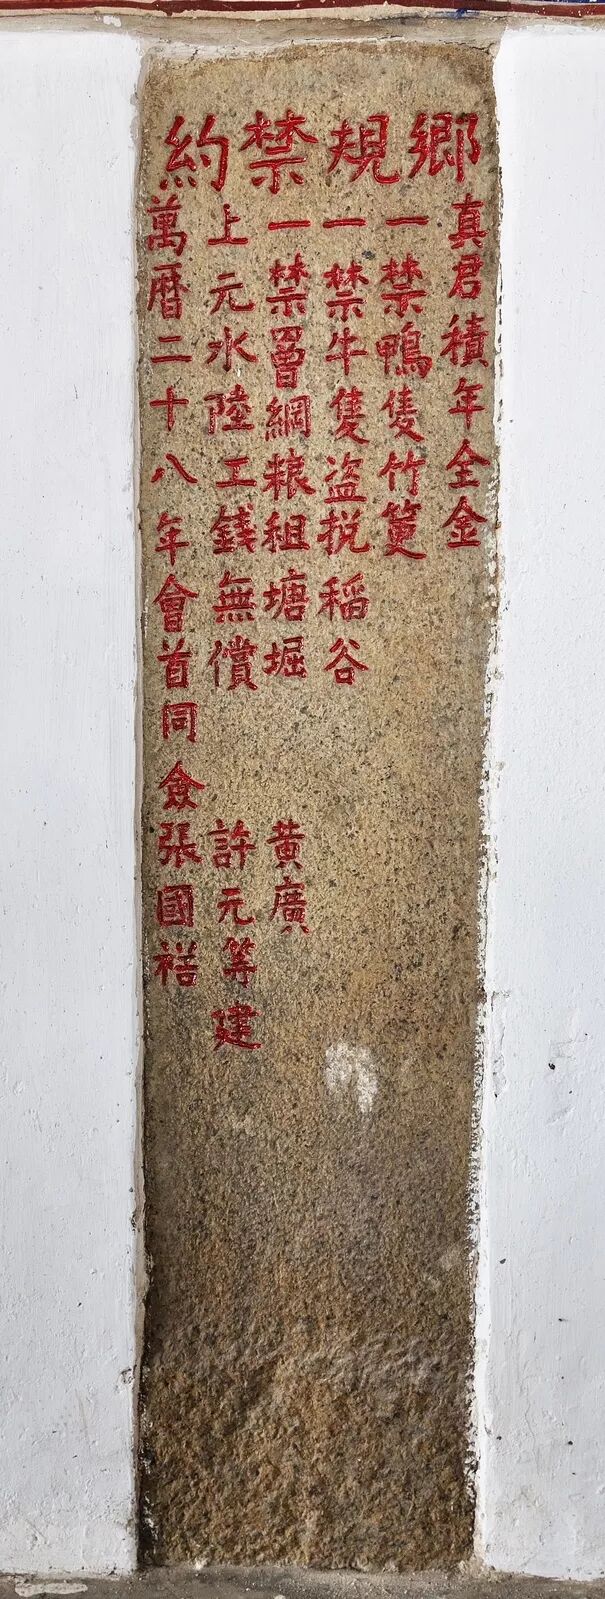 鄉規禁約
真君積年全金
一禁鴨隻竹篊
一禁牛隻盜挩稻谷
一禁罾網粮租塘堀
上元水陸工錢無償
萬曆二十八年會首同僉張國禎
黃廣
許元等建